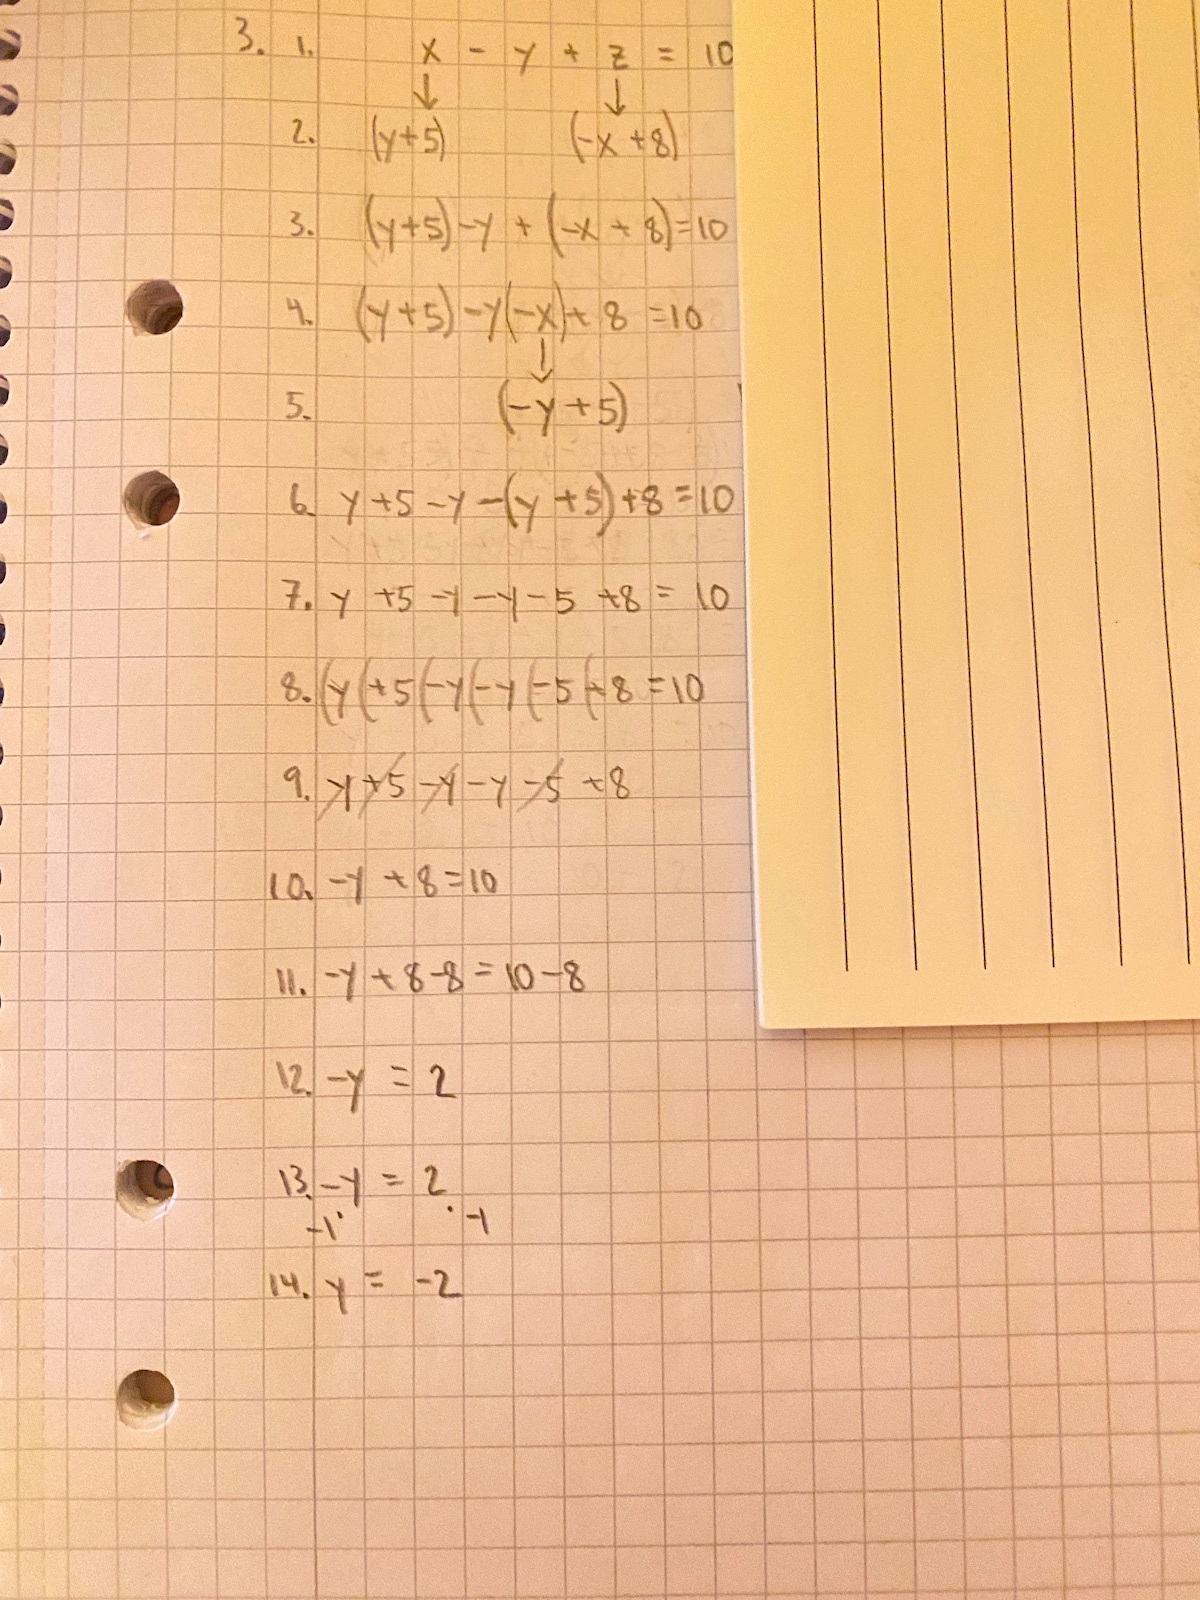 3. 1. x - y + z = 10
↓ ↓
2. (y+5) (-x +8)
3. (y+5)-y + (-x + 8)=10
4. (y+5)-y(-x)+ 8 =10
↓
5. (-y +5)
6. y +5 -y -(y +5)+8 =10
7. y +5 -y -y -5 +8 = 10
8. (y(+5(-y(-y(-5(+8 =10
9. y +5 -y -y -5 +8
10. -y +8 =10
11. -y + 8 -8 = 10 -8
12. -y = 2
13. -y = 2
-1· ·-1
14. y = -2